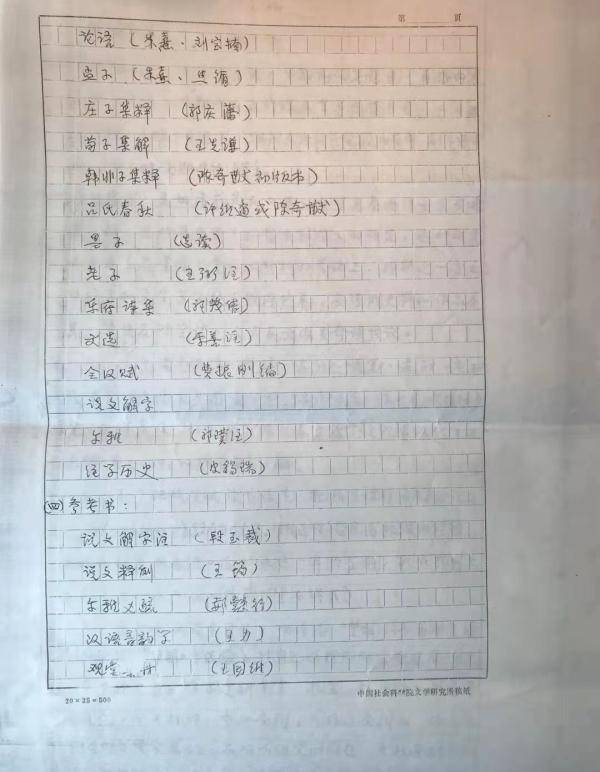 第 頁
论语（朱熹、刘宝楠）
孟子（朱熹、焦循）
庄子集释（郭庆藩）
荀子集解（王先谦）
韩非子集释（陈奇猷初版书）
吕氏春秋（许维遹或陈奇猷）
墨子（选读）
老子（王弼注）
乐府诗集（郭茂倩）
文选（李善注）
全汉赋（费振刚编）
说文解字
尔雅（郭璞注）
经学历史（皮锡瑞）
(四)参考书：
说文解字注（段玉裁）
说文释例（王筠）
尔雅义疏（郝懿行）
汉语音韵学（王力）
观堂集林（王国维）
20×25=500
中国社会科学院文学研究所稿纸